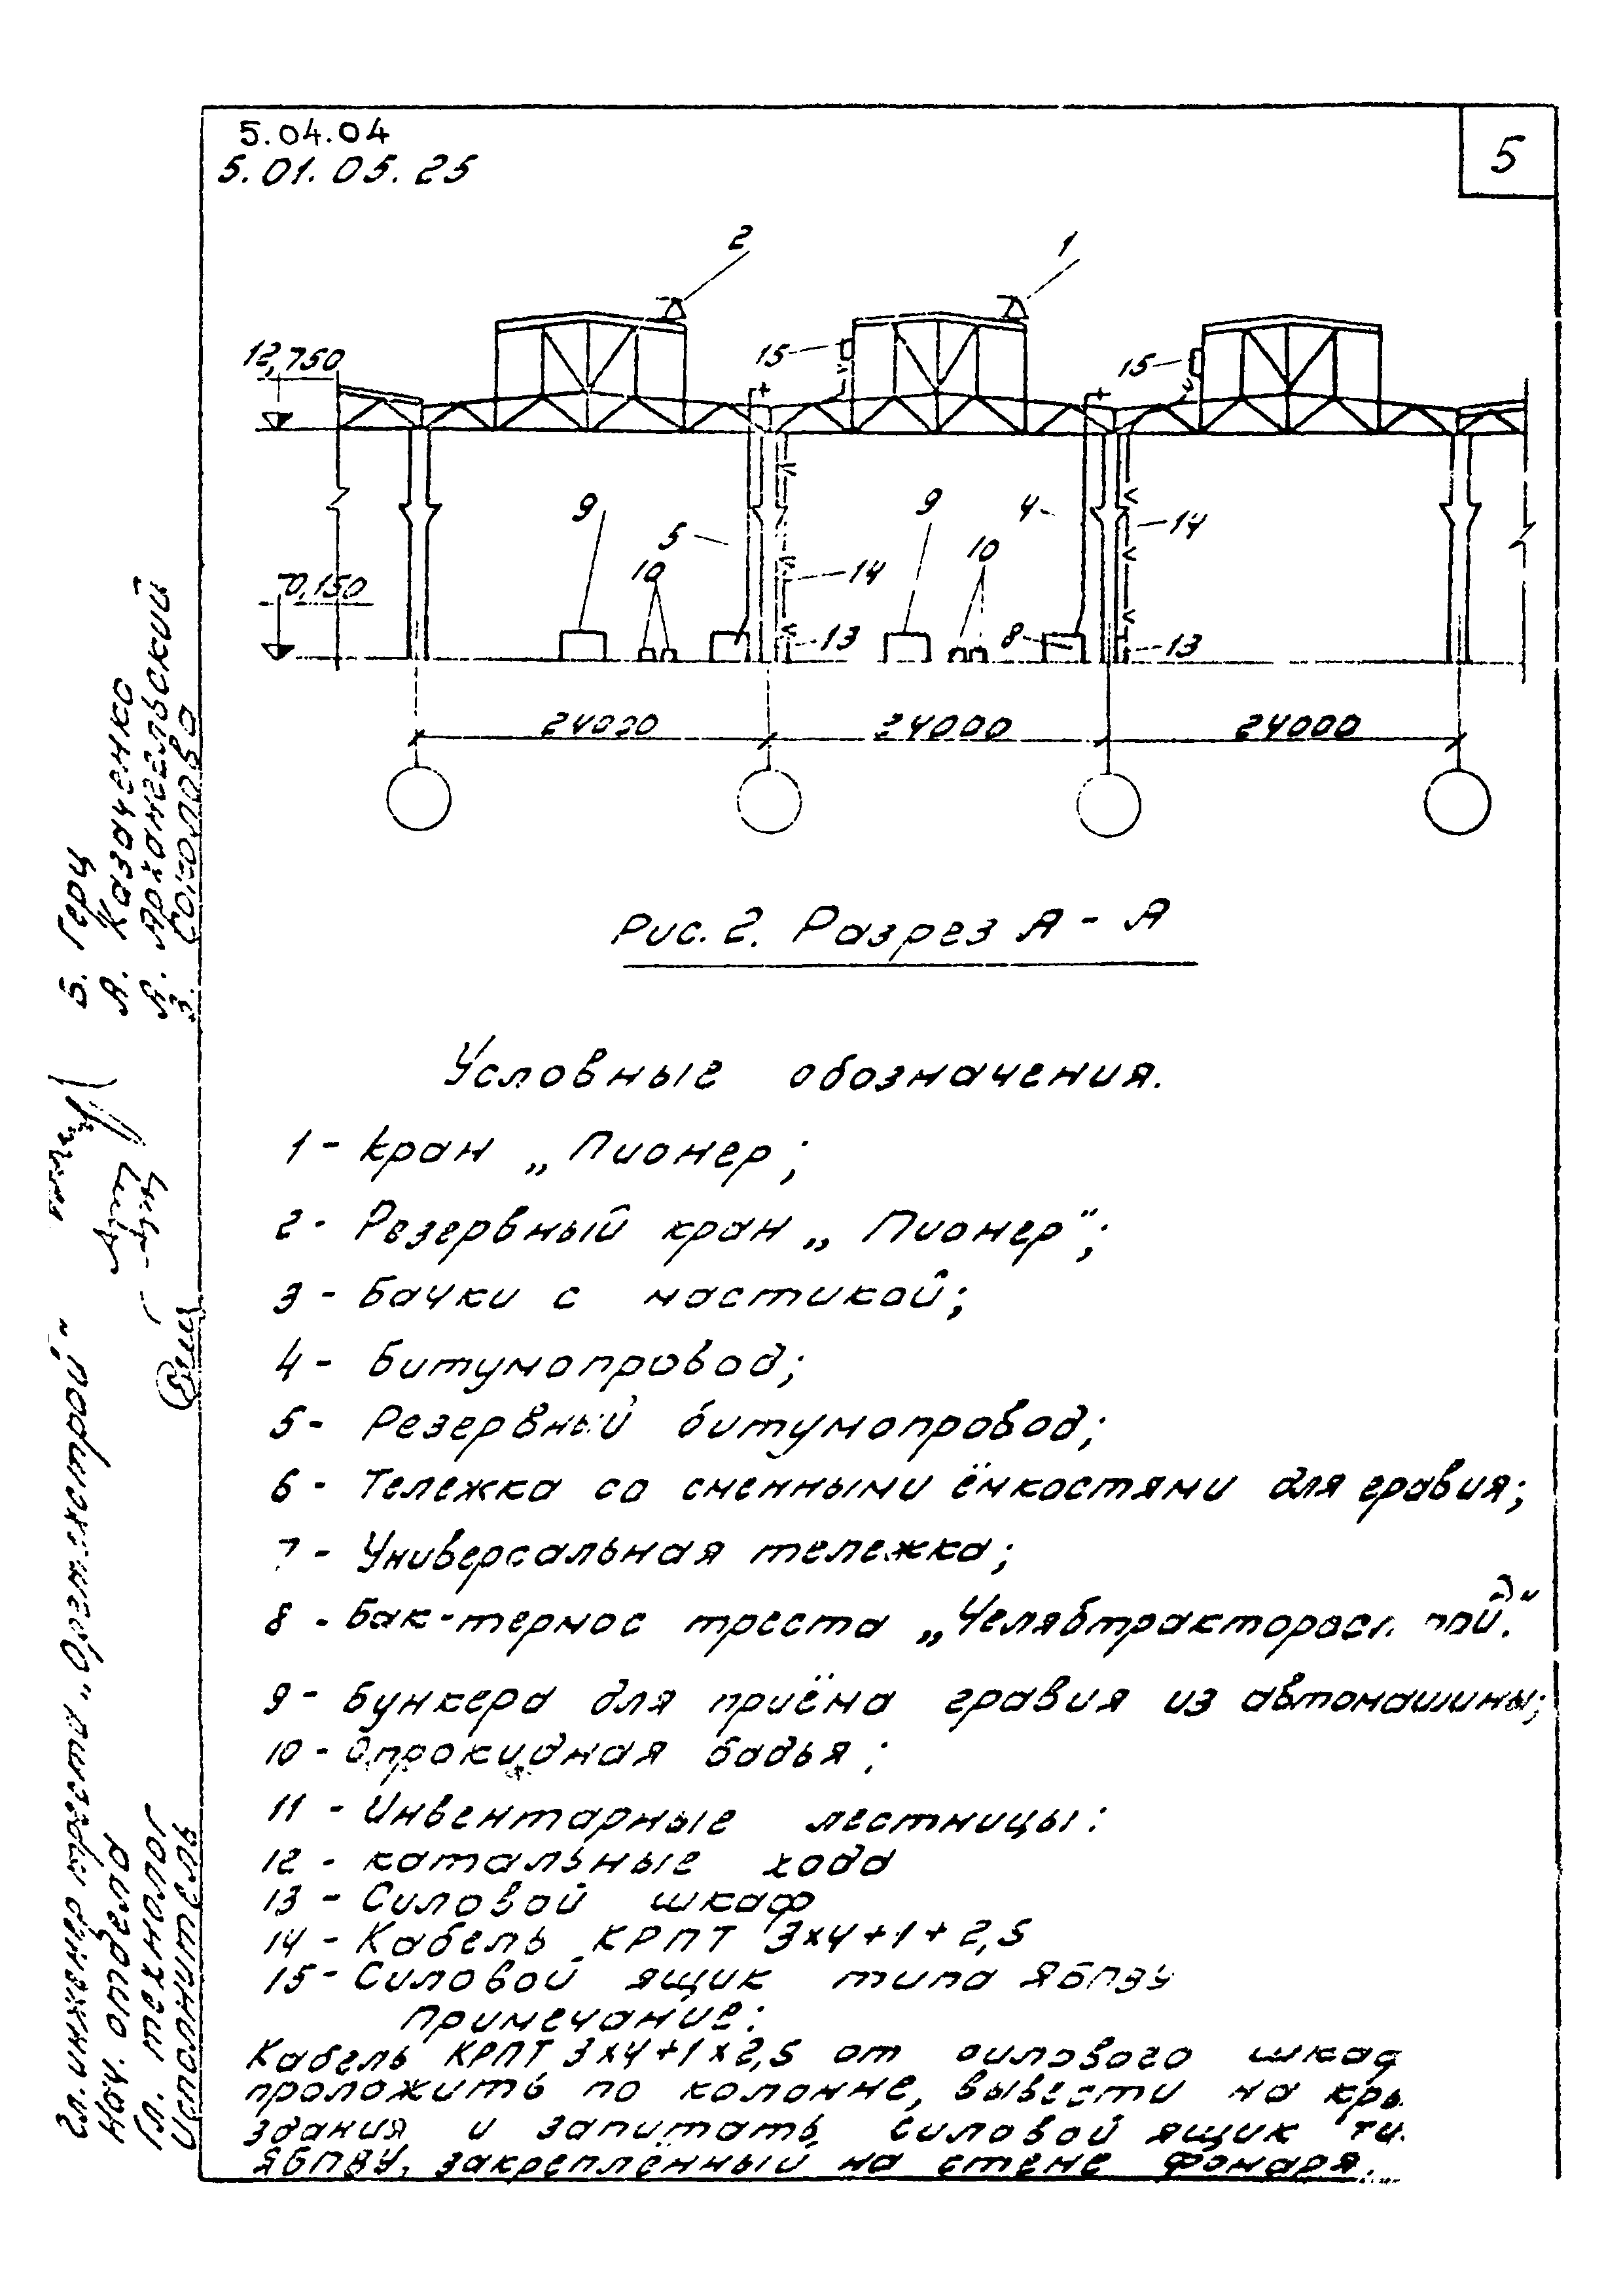 5.04.04
5.01.05.25
5
2
1
12,750
15
15
9
5
10
9
10
4
14
14
0,150
13
8
13
24000
24000
24000
Рис. 2. Разрез А - А
Условные обозначения.
1 - кран „Пионер;
2 - Резервный кран „Пионер";
3 - Бачки с мастикой;
4 - Битумопровод;
5 - Резервный битумопровод;
6 - Тележка со сменными ёмкостями для гравия;
7 - Универсальная тележка;
8 - Бак-термос треста „Челябтракторост  ой."
9 - Бункера для приёма гравия из автомашины;
10 - Опрокидная бадья;
11 - Инвентарные лестницы:
12 - катальные хода
13 - Силовой шкаф
14 - Кабель КРПТ 3х4+1+2,5
15 - Силовой ящик типа ЯБПВУ
примечание:
Кабель КРПТ 3х4+1х2,5 от силового шкаф
проложить по колонне, вывести на кры
здания и запитать силовой ящик ти
ЯБПВУ, закреплённый на стене фонаря.
Гл. инженер треста „Оргтехстрой"
Б. Герц
Нач. отдела
А. Казаченко
Гл. технолог
А. Архангельский
Исполнитель
З.